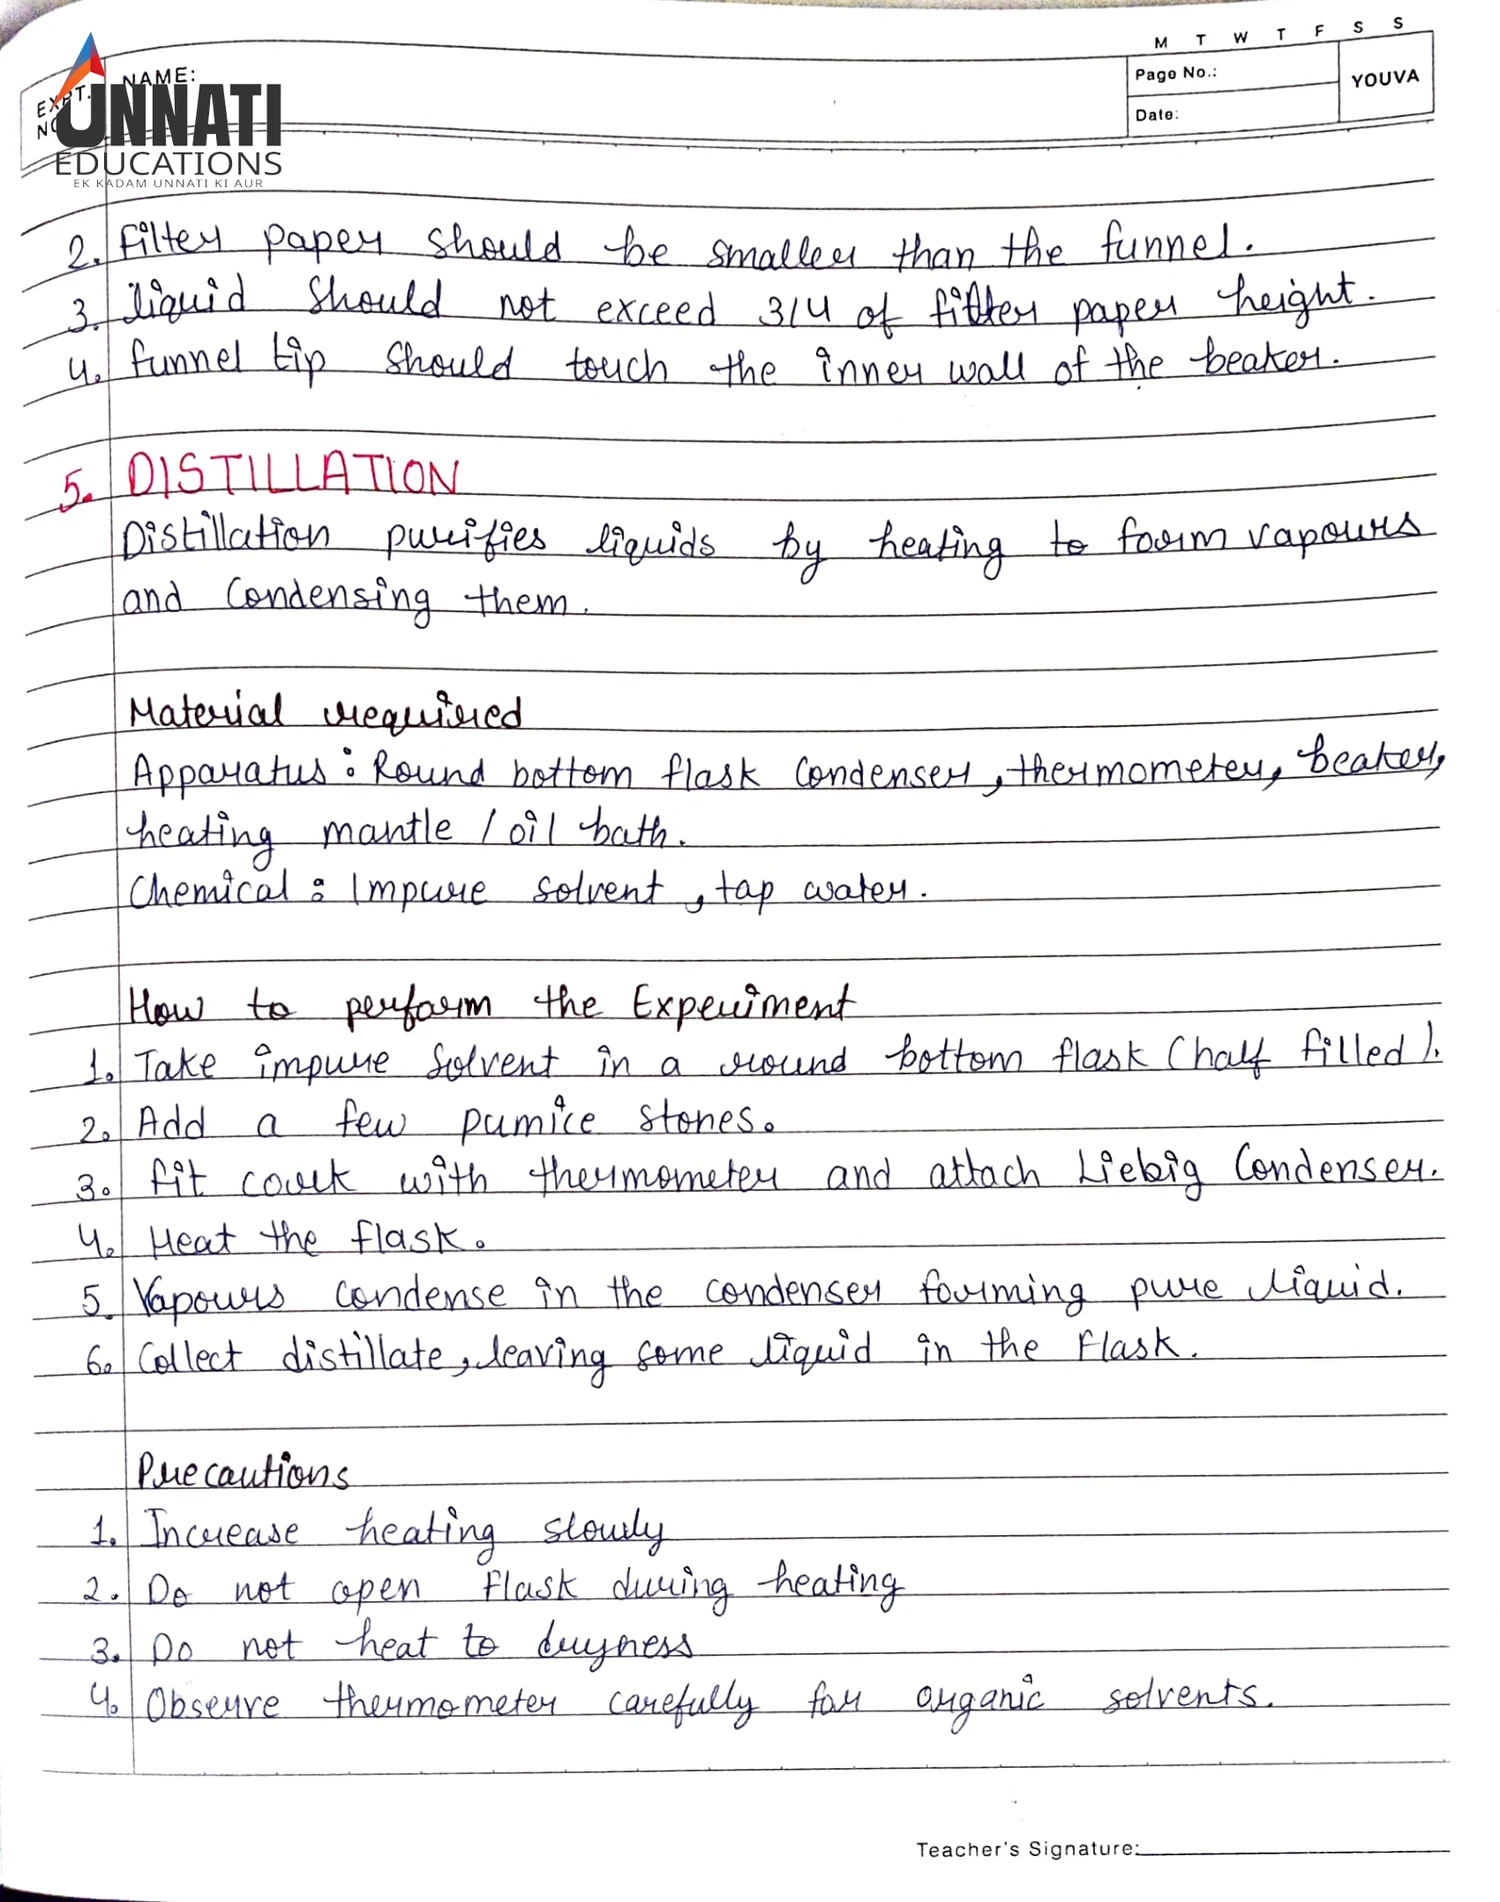 M T W T F S S
Page No.:
YOUVA
Date:
NAME:
EXPT.
UNNATI
EDUCATIONS
EK KADAM UNNATI KI AUR
2. Filter paper should be smaller than the funnel.
3. liquid should not exceed 3/4 of filter paper height.
4. funnel tip should touch the inner wall of the beaker.
5. DISTILLATION
Distillation purifies liquids by heating to form vapours
and Condensing them.
Material required
Apparatus : Round bottom flask Condenser, thermometer, beaker,
heating mantle / oil bath.
Chemical : Impure solvent, tap water.
How to perform the Experiment
1. Take impure Solvent in a round bottom flask (half filled).
2. Add a few pumice stones.
3. fit cork with thermometer and attach Liebig Condenser.
4. Heat the flask.
5. Vapours condense in the condenser forming pure liquid.
6. Collect distillate, leaving some liquid in the Flask.
Precautions
1. Increase heating slowly
2. Do not open Flask during heating
3. Do not heat to dryness
4. Observe thermometer carefully for organic solvents.
Teacher's Signature: